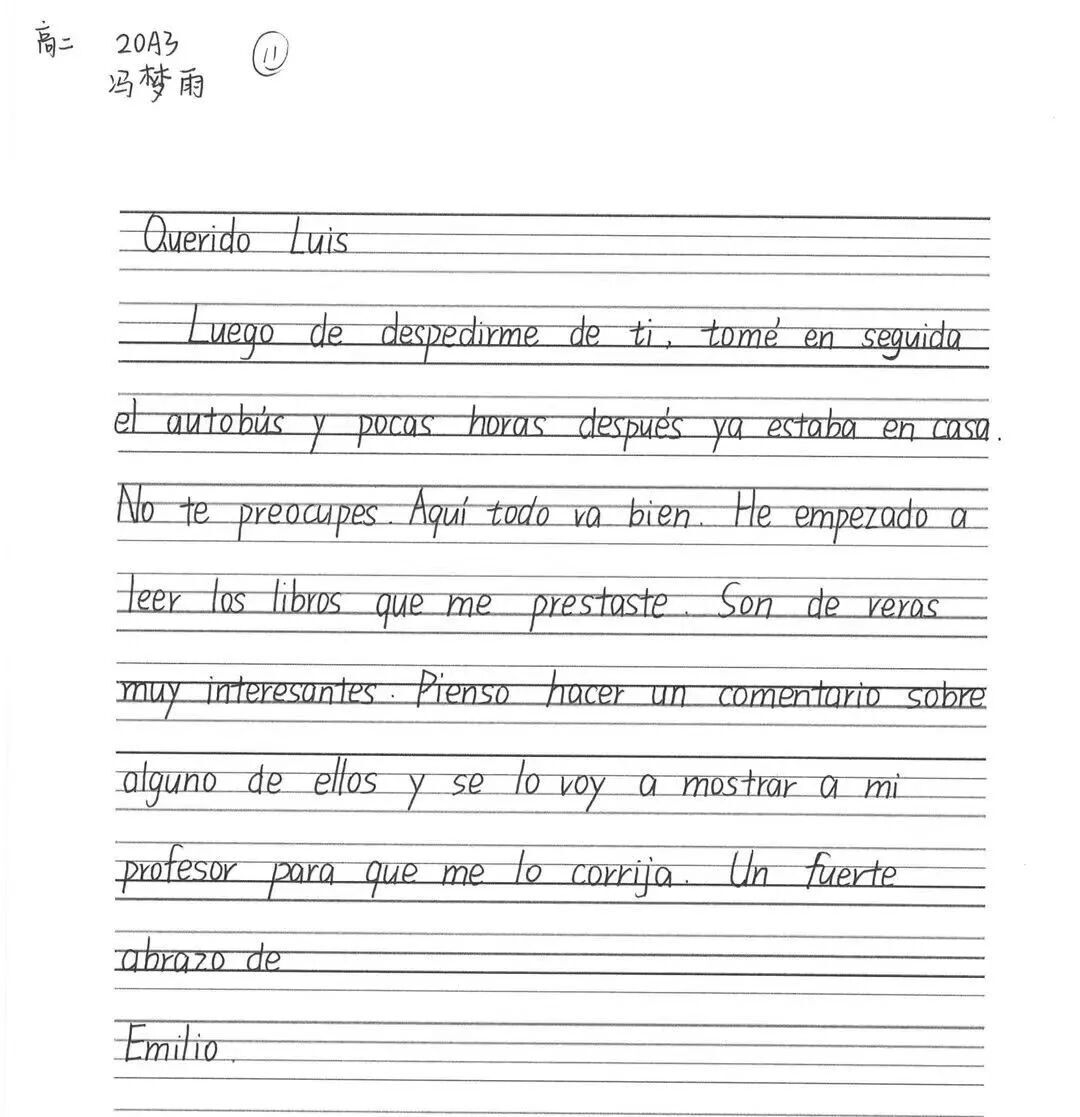 高二 20A3 11
冯梦雨
Querido Luis
Luego de despedirme de ti, tomé en seguida
el autobús y pocas horas después ya estaba en casa.
No te preocupes. Aquí todo va bien. He empezado a
leer los libros que me prestaste. Son de veras
muy interesantes. Pienso hacer un comentario sobre
alguno de ellos y se lo voy a mostrar a mi
profesor para que me lo corrija. Un fuerte
abrazo de
Emilio.